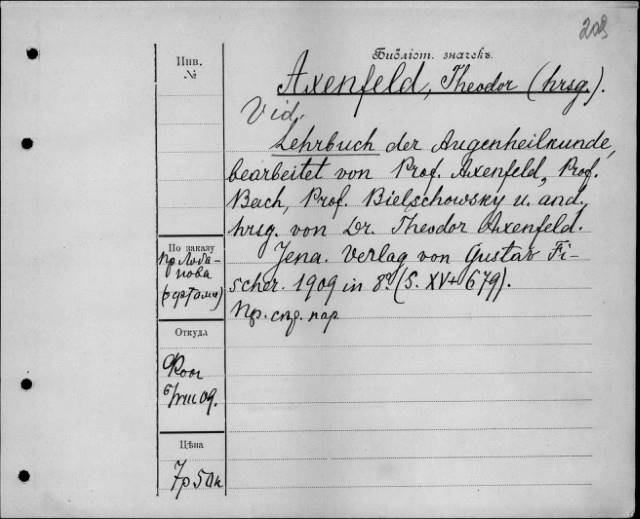 203
Инв.
№
Библіот. значекъ.
Axenfeld, Theodor (hrsg.).
Vid.
Lehrbuch der Augenheilkunde,
bearbeitet von Prof. Axenfeld, Prof.
Bach, Prof. Bielschowsky u. and.,
hrsg. von Dr. Theodor Axenfeld.
Jena. Verlag von Gustav Fi-
scher. 1909 in 8º. (S. XV+679).
По заказу
Пр Лоба-
нова
Откуда
6/VIII 09.
Цѣна
7р 50к